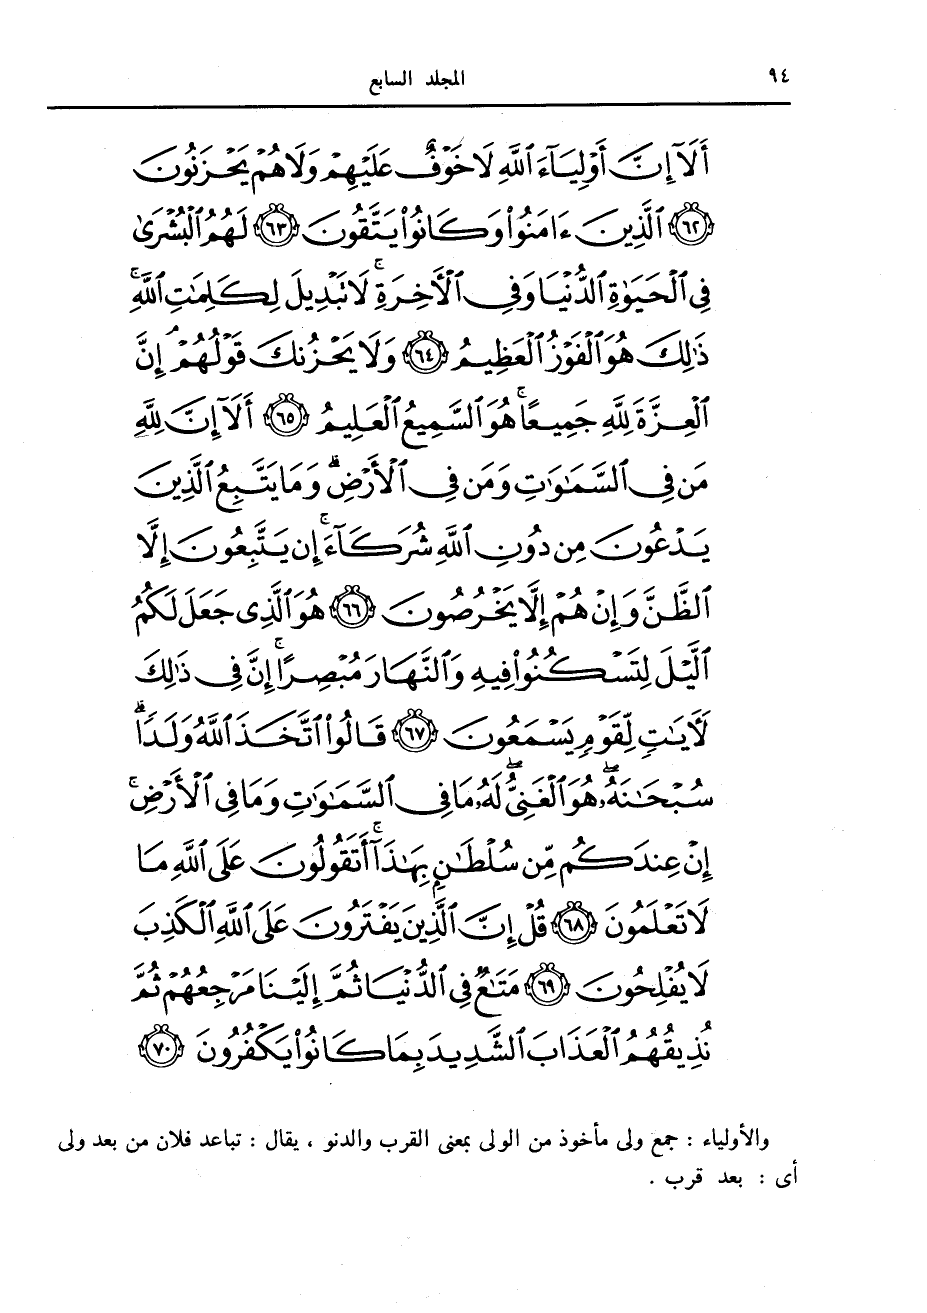 ٩٤
المجلد السابع
أَلَآ إِنَّ أَوْلِيَآءَ ٱللَّهِ لَا خَوْفٌ عَلَيْهِمْ وَلَا هُمْ يَحْزَنُونَ
﴿٦٢﴾ ٱلَّذِينَ ءَامَنُوا۟ وَكَانُوا۟ يَتَّقُونَ ﴿٦٣﴾ لَهُمُ ٱلْبُشْرَىٰ
فِى ٱلْحَيَوٰةِ ٱلدُّنْيَا وَفِى ٱلْأَخِرَةِ ۚ لَا تَبْدِيلَ لِكَلِمَٰتِ ٱللَّهِ ۚ
ذَٰلِكَ هُوَ ٱلْفَوْزُ ٱلْعَظِيمُ ﴿٦٤﴾ وَلَا يَحْزُنكَ قَوْلُهُمْ ۘ إِنَّ
ٱلْعِزَّةَ لِلَّهِ جَمِيعًا ۚ هُوَ ٱلسَّمِيعُ ٱلْعَلِيمُ ﴿٦٥﴾ أَلَآ إِنَّ لِلَّهِ
مَن فِى ٱلسَّمَٰوَٰتِ وَمَن فِى ٱلْأَرْضِ ۗ وَمَا يَتَّبِعُ ٱلَّذِينَ
يَدْعُونَ مِن دُونِ ٱللَّهِ شُرَكَآءَ ۚ إِن يَتَّبِعُونَ إِلَّا
ٱلظَّنَّ وَإِنْ هُمْ إِلَّا يَخْرُصُونَ ﴿٦٦﴾ هُوَ ٱلَّذِى جَعَلَ لَكُمُ
ٱلَّيْلَ لِتَسْكُنُوا۟ فِيهِ وَٱلنَّهَارَ مُبْصِرًا ۚ إِنَّ فِى ذَٰلِكَ
لَأَيَٰتٍ لِّقَوْمٍ يَسْمَعُونَ ﴿٦٧﴾ قَالُوا۟ ٱتَّخَذَ ٱللَّهُ وَلَدًا ۗ
سُبْحَٰنَهُۥ ۖ هُوَ ٱلْغَنِىُّ ۖ لَهُۥ مَا فِى ٱلسَّمَٰوَٰتِ وَمَا فِى ٱلْأَرْضِ ۚ
إِنْ عِندَكُم مِّن سُلْطَٰنٍۭ بِهَٰذَآ ۚ أَتَقُولُونَ عَلَى ٱللَّهِ مَا
لَا تَعْلَمُونَ ﴿٦٨﴾ قُلْ إِنَّ ٱلَّذِينَ يَفْتَرُونَ عَلَى ٱللَّهِ ٱلْكَذِبَ
لَا يُفْلِحُونَ ﴿٦٩﴾ مَتَٰعٌ فِى ٱلدُّنْيَا ثُمَّ إِلَيْنَا مَرْجِعُهُمْ ثُمَّ
نُذِيقُهُمُ ٱلْعَذَابَ ٱلشَّدِيدَ بِمَا كَانُوا۟ يَكْفُرُونَ ﴿٧٠﴾
والأولياء : جمع ولى مأخوذ من الولى بمعنى القرب والدنو ، يقال : تباعد فلان من بعد ولى
أى : بعد قرب .